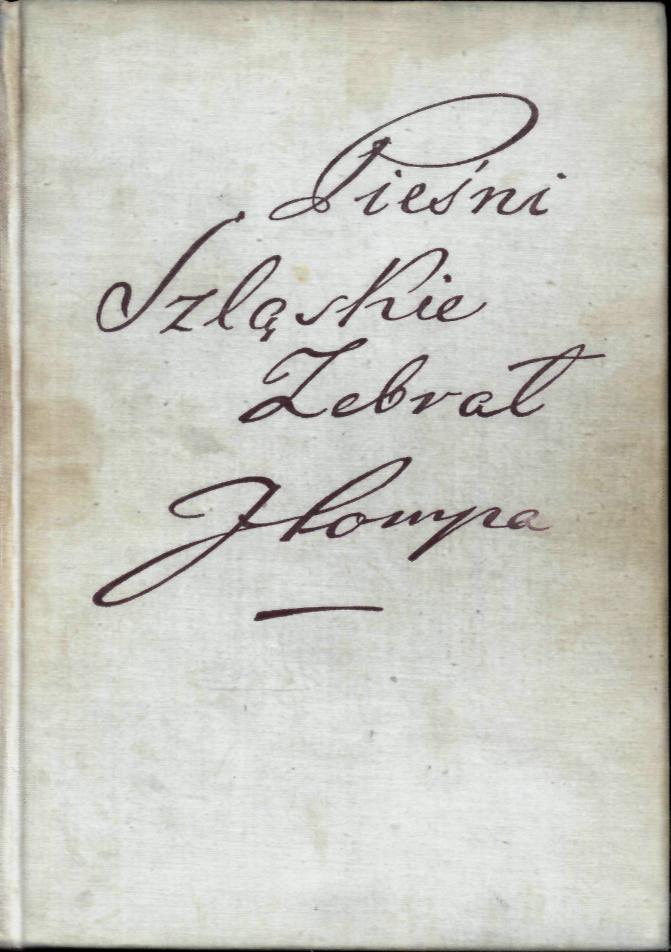 Pieśni
Szląskie
Zebrał
J Lompa